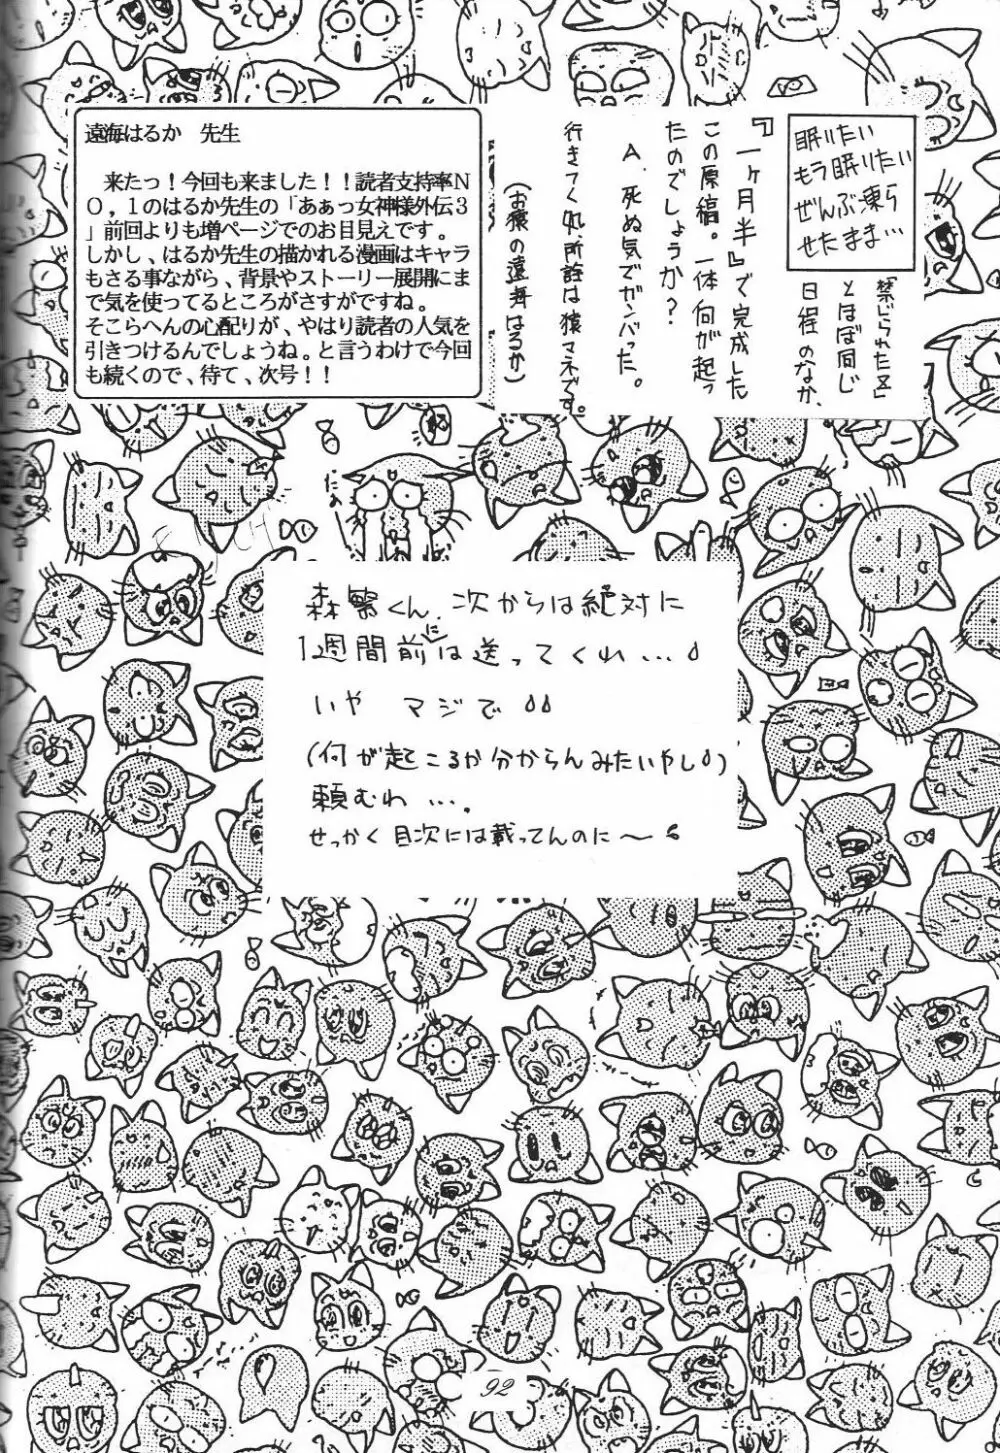 遠海はるか　先生
来たっ！今回も来ました！！読者支持率Ｎ
Ｏ，１のはるか先生の「あぁっ女神様外伝３
」前回よりも増ページでのお目見えです。
しかし、はるか先生の描かれる漫画はキャラ
もさる事ながら、背景やストーリー展開にま
で気を使ってるところがさすがですね。
そこらへんの心配りが、やはり読者の人気を
引きつけるんでしょうね。と言うわけで今回
も続くので、待て、次号！！
眠りたい
もう眠りたい
ぜんぶ凍ら
せたまま…
禁じられた
とほぼ同じ
日程のなか、
『一ヶ月半』で完成した
この原稿。一体何が起っ
たのでしょうか？
A. 死ぬ気でガンバった。
行きつく処、所詮は猿マネです。
(お猿の遠海はるか)
森繁くん、次からは絶対に
1週間前には送ってくれ…
いや マジで
(何が起こるか分からんみたいやし)
頼むわ…。
せっかく目次には載ってんのに〜
92